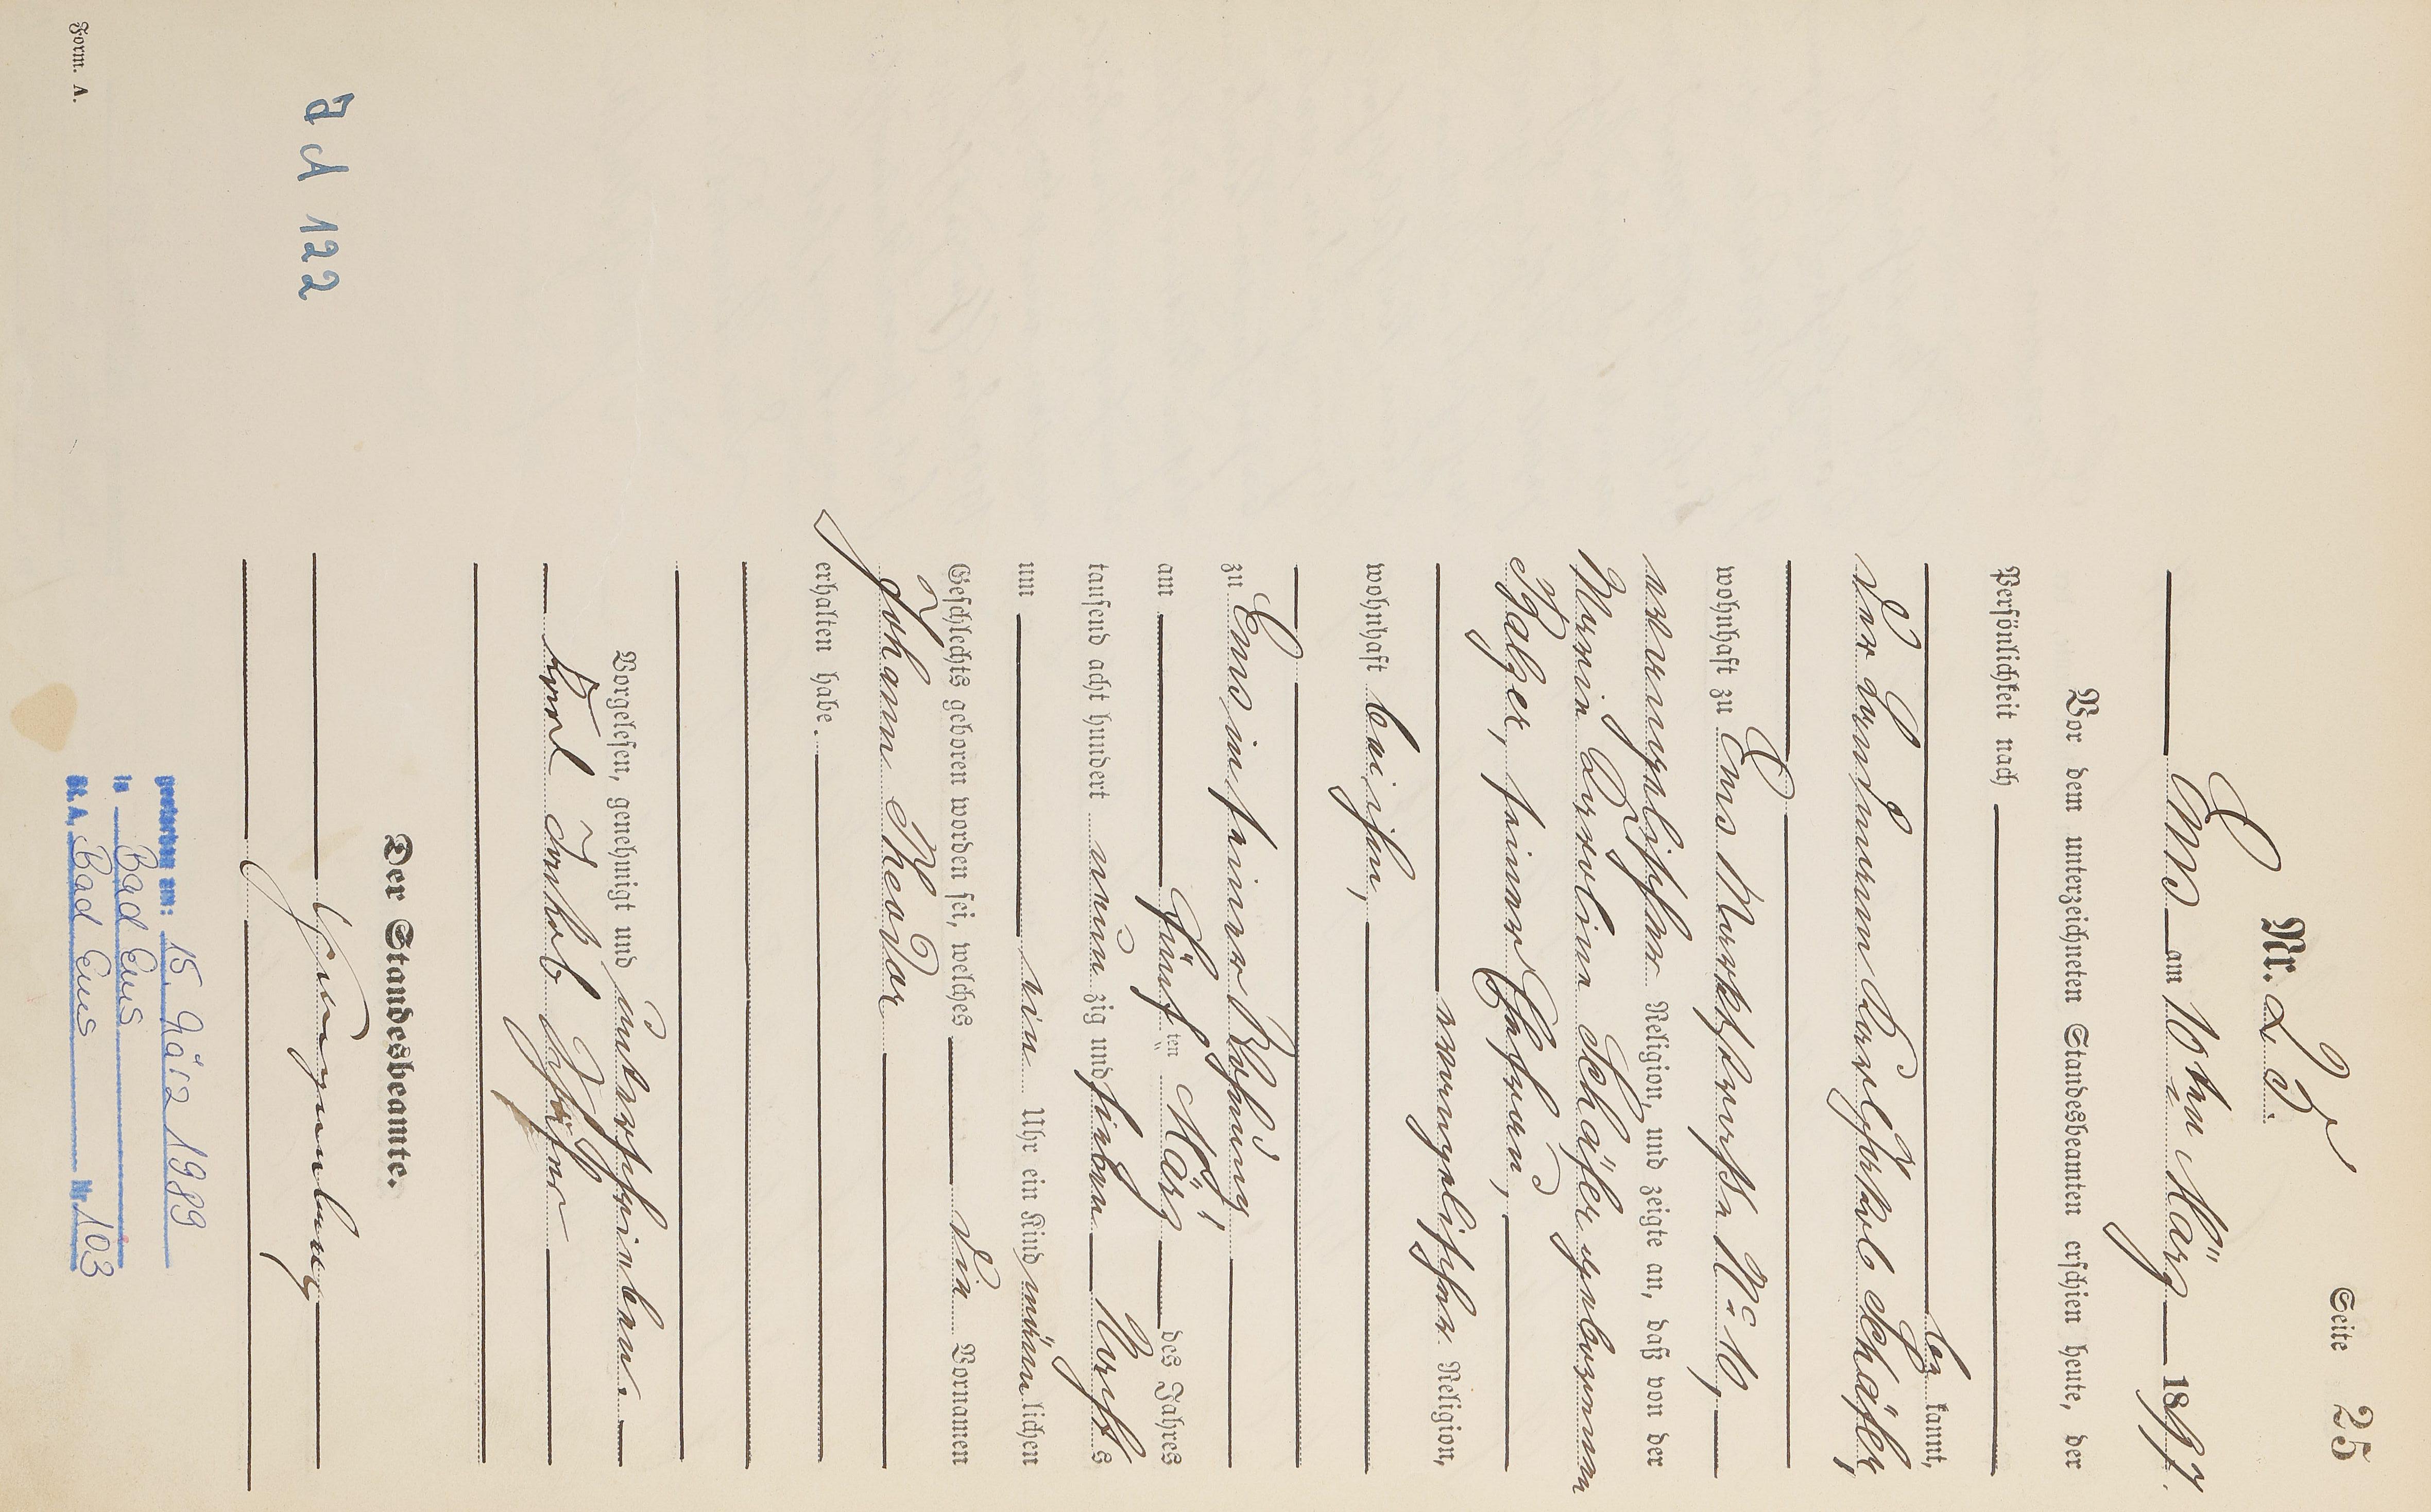 Seite 25
Nr. 25.
Ems am 10ten März 1897.
Vor dem unterzeichneten Standesbeamten erschien heute, der
Persönlichkeit nach
be kannt,
der Karl Jakob Schäfer,
wohnhaft zu Ems Marktstraße No 10,
evangelischer Religion, und zeigte an, daß von der
Maria Carolina Schäfer geborenen
Balzer, seiner Ehefrau,
evangelischer Religion,
wohnhaft bei ihm,
zu Ems in seiner Wohnung,
am fünf ten März des Jahres
tausend acht hundert neun zig und sieben Nachts
um ein Uhr ein Kind männ lichen
Geschlechts geboren worden sei, welches die Vornamen
Johann Theodor
erhalten habe.
Vorgelesen, genehmigt und unterschrieben.
Karl Jakob Schäfer
Der Standesbeamte.
gestorben am: 15. März 1989
in Bad Ems
St.A. Bad Ems Nr. 103
d d 122
Form. A.